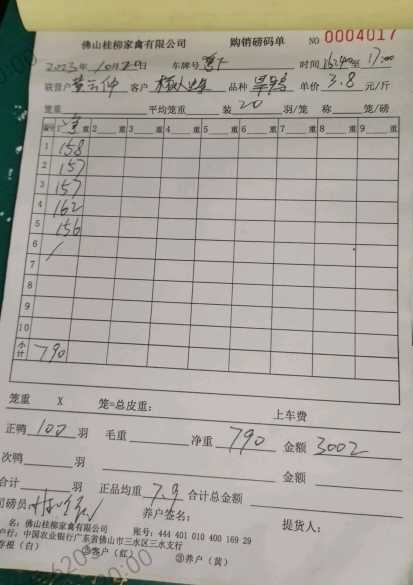 佛山桂柳家禽有限公司 购销磅码单 NO 0004017
2023年10月20日 车牌号 时间 17:00
联营户 客户 品种 单价 3.8 元/斤
笼重 平均笼重 装 20 羽/笼 称 笼/磅
编号 1 重 2 重 3 重 4 重 5 重 6 重 7 重 8 重 9 重
1 158
2 157
3 157
4 162
5 156
6 /
7
8
9
10
小计 790
笼重 X 笼=总皮重: 上车费
正鸭 100 羽 毛重 净重 790 金额 3002
次鸭 羽 金额
合计 羽 正品均重 7.9 合计总金额
司磅员 养户签名: 提货人:
名:佛山桂柳家禽有限公司 账号:444 401 010 400 169 29
户行:中国农业银行广东省佛山市三水区三水支行
存根(白) ②客户(红) ③养户(黄)